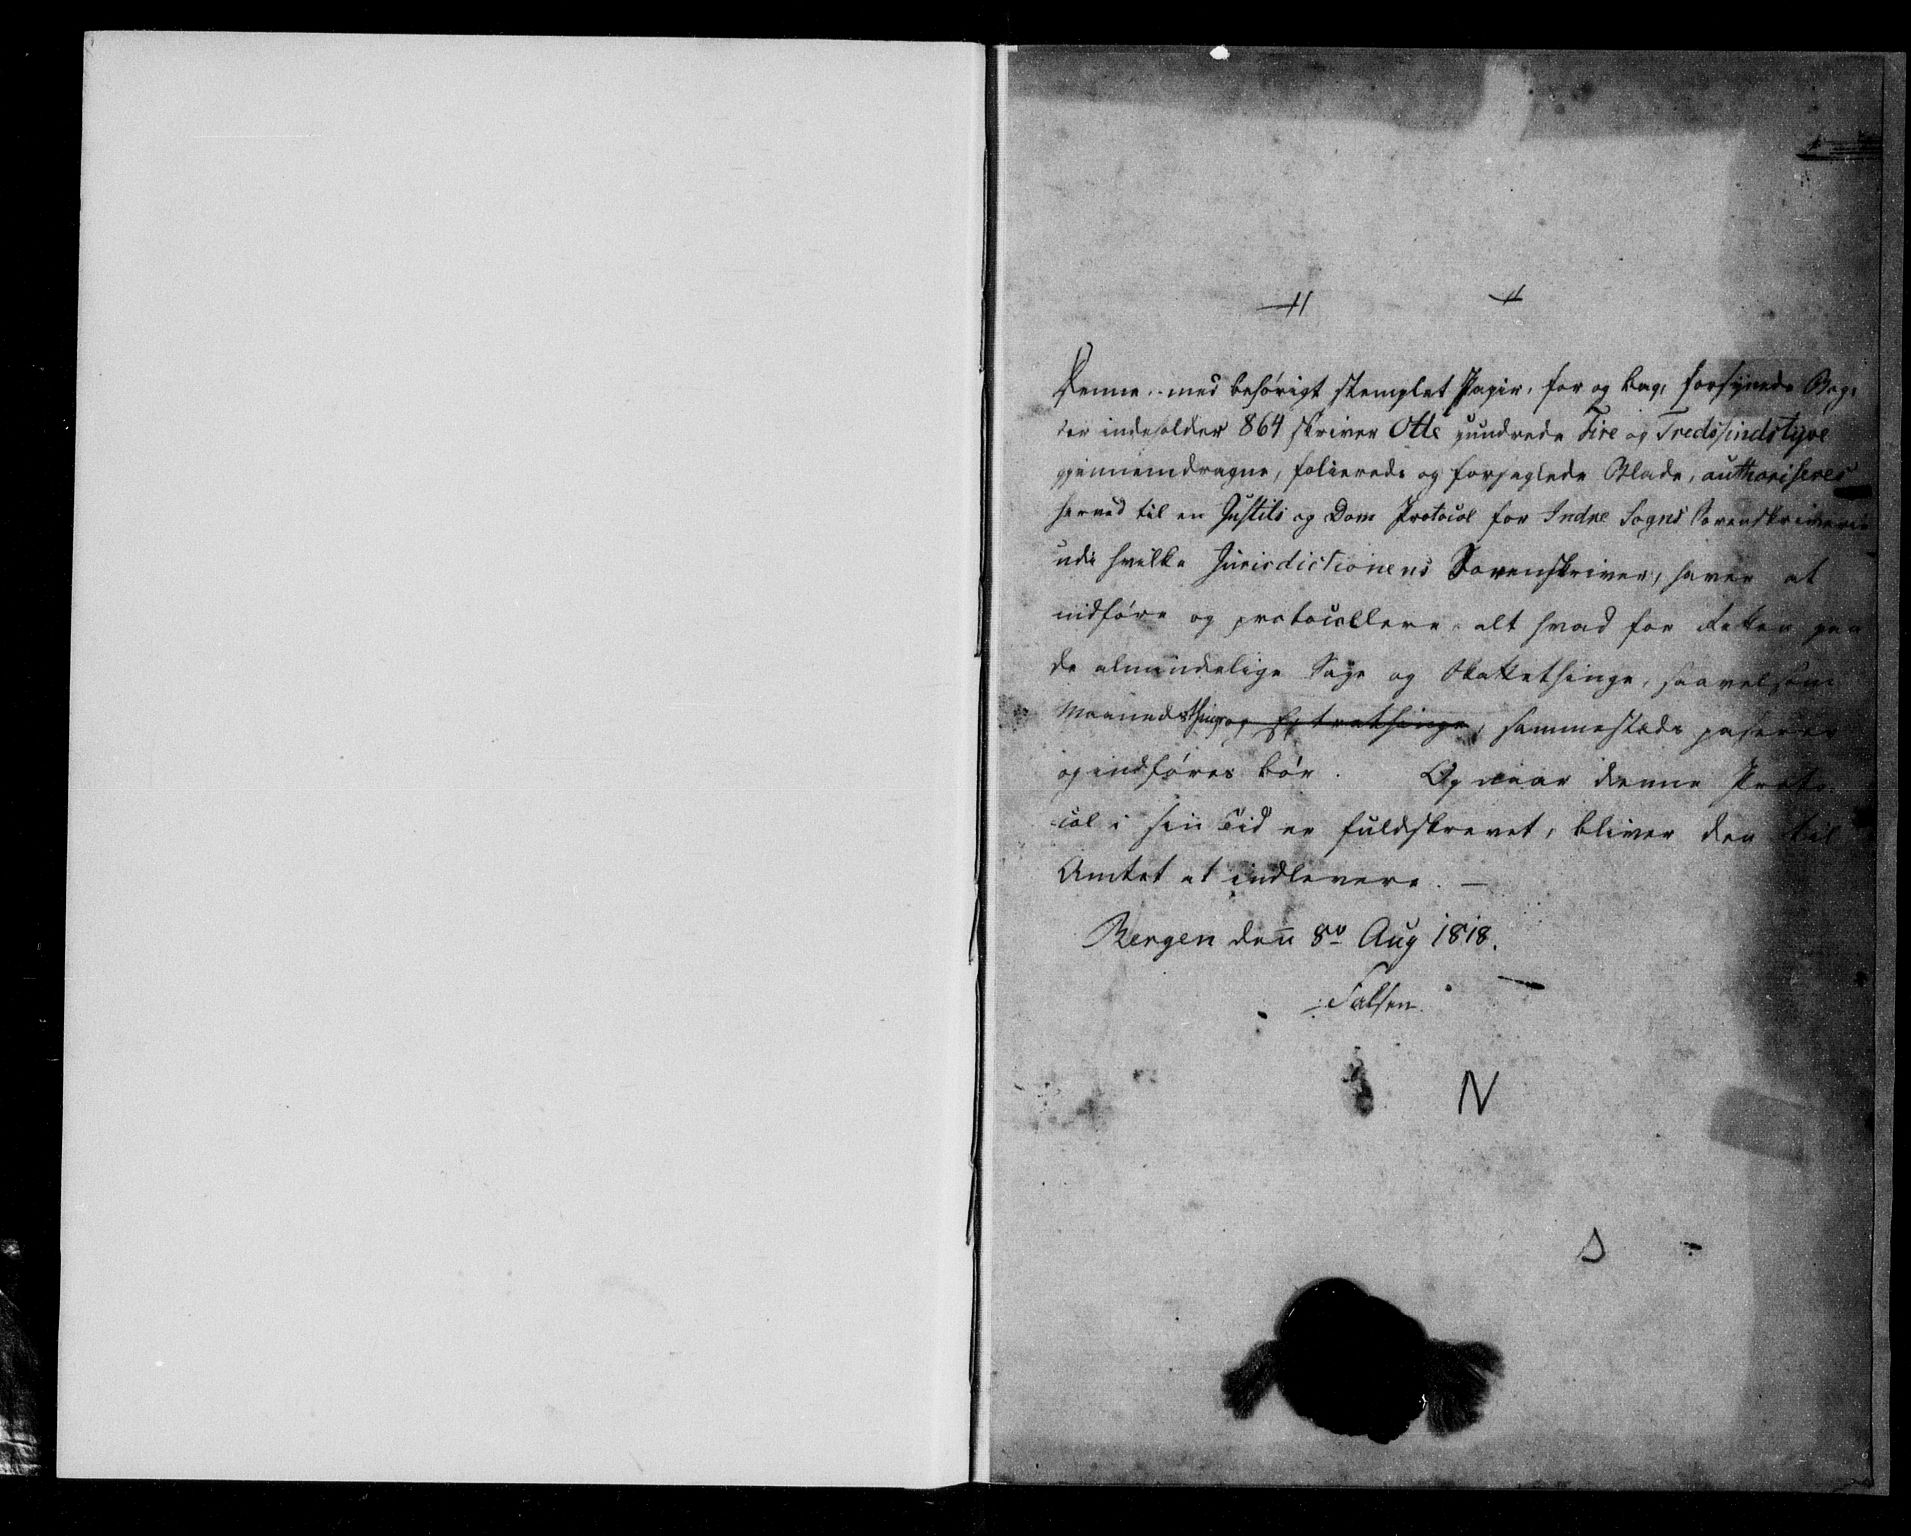 Denne, med behørigt stemplet Papir, for og bag, forsynede Bog,
der indeholder 864 skriver Otte Hundrede Fire og Tredssindstyve
gjennemdragne, folierede og forseglede Blade, authoriseres
herved til en Justits og Dom Protocol for Indre Sogns Sorenskriverie
udi hvilke Jurisdictionens Sorenskriver, haver at
indføre og protocollere alt hvad for Retten paa
de almindelige Sage og Skattethinge, saavelsom
Maanedsthing og Extrathinge, sammesteds paserer
og indføres bør. Og naar denne Proto-
col i sin Tid er fuldskrevet, bliver den til
Amtet at indlevere. —
Bergen den 8de Aug 1818.
Falsen
N
S